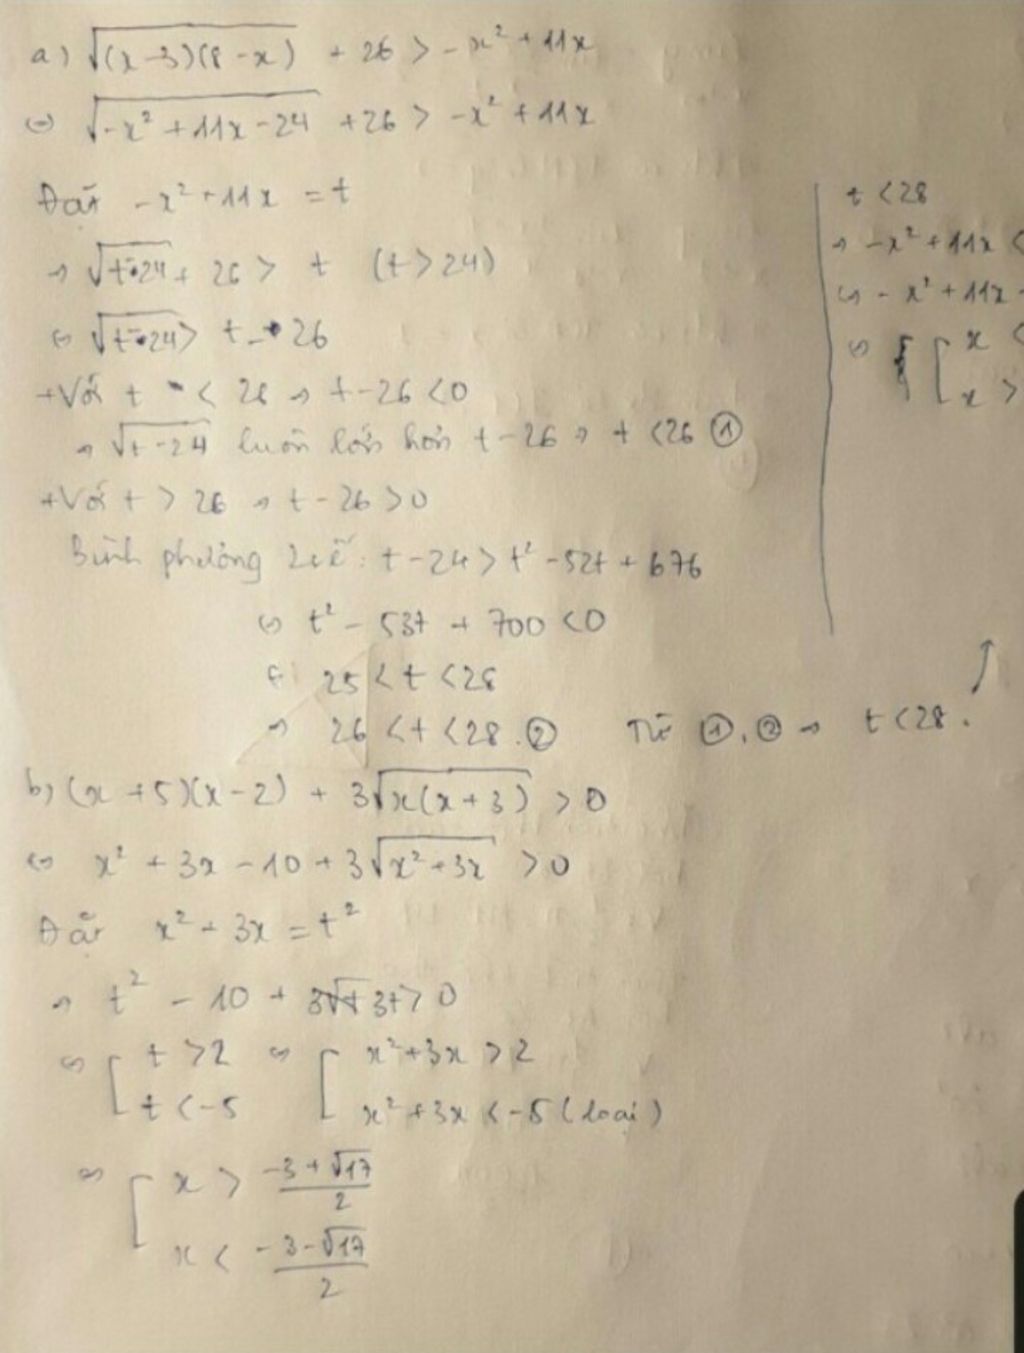 a) √((x-3)(8-x)) + 26 > -x² + 11x
⇔ √(-x² + 11x - 24) + 26 > -x² + 11x
Đặt -x² + 11x = t
⇒ √(t-24) + 26 > t (t > 24)
⇔ √(t-24) > t - 26
+Với t < 26 ⇒ t - 26 < 0
⇒ √(t-24) luôn lớn hơn t - 26 ⇒ t < 26 ①
+Với t > 26 ⇒ t - 26 > 0
Bình phương 2 vế: t - 24 > t² - 52t + 676
⇔ t² - 53t + 700 < 0
⇔ 25 < t < 28
⇒ 26 < t < 28. ② Từ ①, ② ⇒ t < 28.
t < 28
⇒ -x² + 11x <
⇔ -x² + 11x -
⇔ { [ x <
x >
b) (x + 5)(x - 2) + 3√(x(x + 3)) > 0
⇔ x² + 3x - 10 + 3√(x² + 3x) > 0
Đặt x² + 3x = t²
⇒ t² - 10 + 3t > 0
⇔ [ t > 2 ⇔ [ x² + 3x > 2
t < -5 x² + 3x < -5 (loại)
⇔ [ x > (-3 + √17)/2
x < (-3 - √17)/2